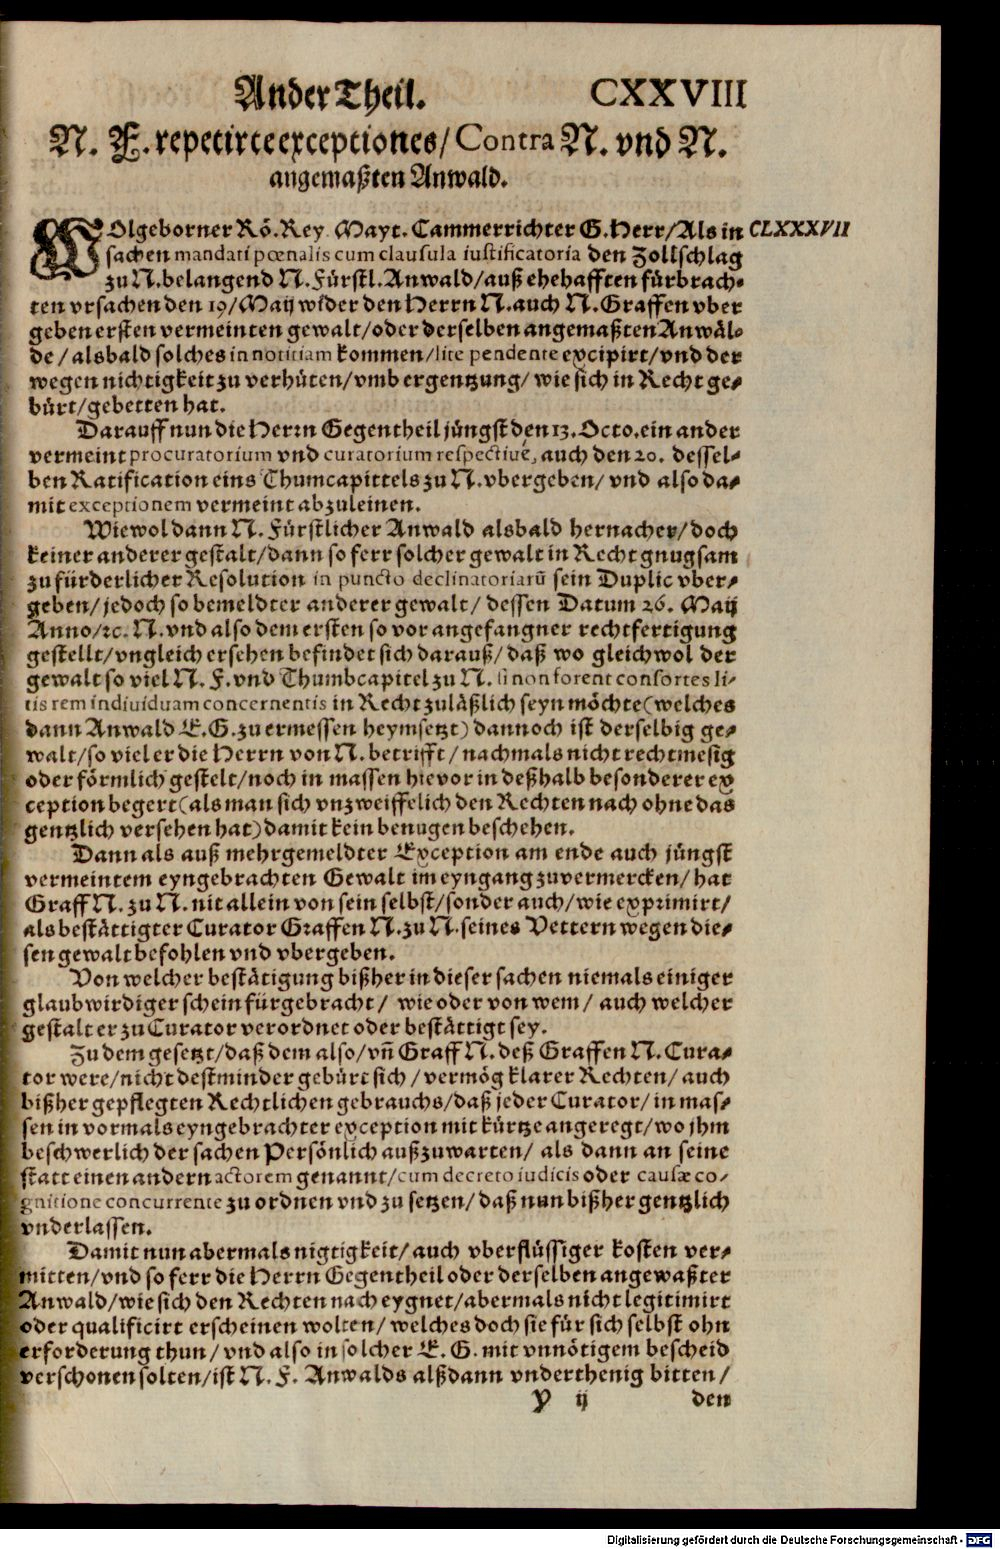 Ander Theil. CXXVIII
N. F. repetirte exceptiones/ Contra N. vnd N.
angemaßten Anwald.
WOlgeborner Rö. Key. Mayt. Cammerrichter G. Herr/ Als in CLXXXVII
sachen mandati pœnalis cum clausula iustificatoria den Zollschlag
zu N. belangend N. Fürstl. Anwald/ auß ehehafften fürbrach-
ten vrsachen den 19/ Maij wider den Herrn N. auch N. Graffen vber
geben ersten vermeinten gewalt/ oder derselben angemaßten Anwäl-
de/ alsbald solches in notitiam kommen/ lite pendente excipirt/ vnd der
wegen nichtigkeit zu verhüten/ vmb ergentzung/ wie sich in Recht ge-
bürt/ gebetten hat.
Darauff nun die Herrn Gegentheil jüngst den 13. Octo. ein ander
vermeint procuratorium vnd curatorium respectiuè, auch den 20. dessel-
ben Ratification eins Thumcapittels zu N. vbergeben/ vnd also da-
mit exceptionem vermeint abzuleinen.
Wiewol dann N. Fürstlicher Anwald alsbald hernacher/ doch
keiner anderer gestalt/ dann so ferr solcher gewalt in Recht gnugsam
zu fürderlicher Resolution in puncto declinatoriarū sein Duplic vber-
geben/ jedoch so bemeldter anderer gewalt/ dessen Datum 26. Maij
Anno/ ꝛc. N. vnd also dem ersten so vor angefangner rechtfertigung
gestellt/ vngleich ersehen befindet sich darauß/ daß wo gleichwol der
gewalt so viel N. F. vnd Thumbcapitel zu N. si non forent consortes li-
tis rem indiuiduam concernentis in Recht zuläßlich seyn möchte (welches
dann Anwald E. G. zu ermessen heymsetzt) dannoch ist derselbig ge-
walt/ so viel er die Herrn von N. betrifft/ nachmals nicht rechtmesig
oder förmlich gestelt/ noch in massen hievor in deßhalb besonderer ex
ception begert (als man sich vnzweiffelich den Rechten nach ohne das
gentzlich versehen hat) damit kein benugen beschehen.
Dann als auß mehrgemeldter Exception am ende auch jüngst
vermeintem eyngebrachten Gewalt im eyngang zuvermercken/ hat
Graff N. zu N. nit allein von sein selbst/ sonder auch/ wie exprimirt/
als bestättigter Curator Graffen N. zu N. seines Vettern wegen die-
sen gewalt befohlen vnd vbergeben.
Von welcher bestätigung bißher in dieser sachen niemals einiger
glaubwirdiger schein fürgebracht/ wie oder von wem/ auch welcher
gestalt er zu Curator verordnet oder bestättigt sey.
Zu dem gesetzt/ daß dem also/ vñ Graff N. deß Graffen N. Cura-
tor were/ nicht destminder gebürt sich/ vermög klarer Rechten/ auch
bißher gepflegten Rechtlichen gebrauchs/ daß jeder Curator/ in mas-
sen in vormals eyngebrachter exception mit kürtze angeregt/ wo jhm
beschwerlich der sachen Persönlich außzuwarten/ als dann an seine
statt einen andern actorem genannt/ cum decreto iudicis oder causæ co-
gnitione concurrente zu ordnen vnd zu setzen/ daß nun bißher gentzlich
vnderlassen.
Damit nun abermals nigtigkeit/ auch vberflüssiger kosten ver-
mitten/ vnd so ferr die Herrn Gegentheil oder derselben angewaßter
Anwald/ wie sich den Rechten nach eygnet/ abermals nicht legitimirt
oder qualificirt erscheinen wolten/ welches doch sie für sich selbst ohn
erforderung thun/ vnd also in solcher E. G. mit vnnötigem bescheid
verschonen solten/ ist N. F. Anwalds alßdann vnderthenig bitten/
Y ij den
Digitalisierung gefördert durch die Deutsche Forschungsgemeinschaft - DFG